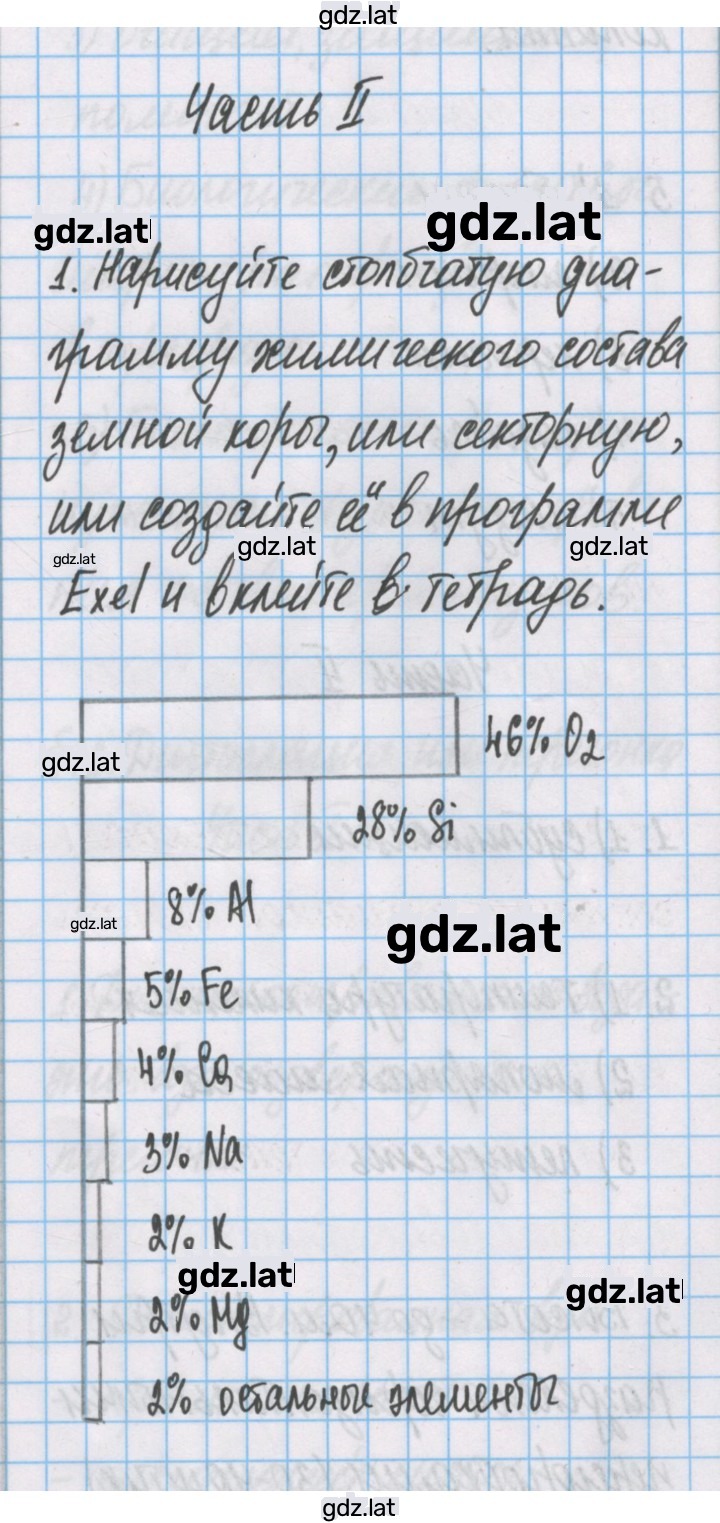 gdz.lat
Часть II
gdz.lat
gdz.lat
1. Нарисуйте столбчатую диа-
грамму химического состава
земной коры, или секторную,
или создайте её в программе
gdz.lat
gdz.lat
gdz.lat
Exel и вклейте в тетрадь.
46% O2
gdz.lat
28% Si
8% Al
gdz.lat
gdz.lat
5% Fe
4% Ca
3% Na
2% K
gdz.lat
gdz.lat
2% Mg
2% остальные элементы
gdz.lat